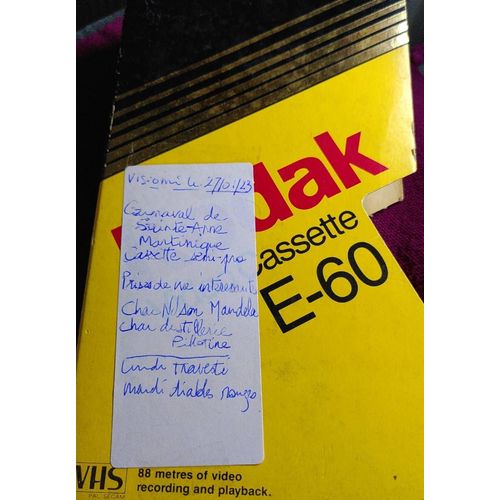 Kodak
cassette
E-60
Visionné le 27/01/23
Carnaval de
Sainte-Anne
Martinique
Cassette semi-pro
Prises de vue intéressante
Char Nelson Mandela
char distillerie
Pilotine
Lundi Travesti
mardi diables rouges
VHS
PAL SECAM
88 metres of video
recording and playback.